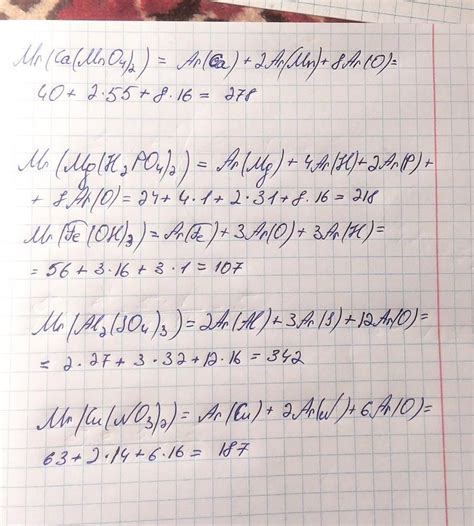 Mr(Ca(MnO4)2) = Ar(Ca)+2Ar(Mn)+8Ar(O)=
40+2·55+8·16 = 278
Mr(Mg(H2PO4)2) = Ar(Mg)+4Ar(H)+2Ar(P)+
+8Ar(O)=24+4·1+2·31+8·16=218
Mr(Fe(OH)3)=Ar(Fe)+3Ar(O)+3Ar(H)=
=56+3·16+3·1=107
Mr(Al2(SO4)3)=2Ar(Al)+3Ar(S)+12Ar(O)=
=2·27+3·32+12·16=342
Mr(Cu(NO3)2)=Ar(Cu)+2Ar(N)+6Ar(O)=
63+2·14+6·16= 187